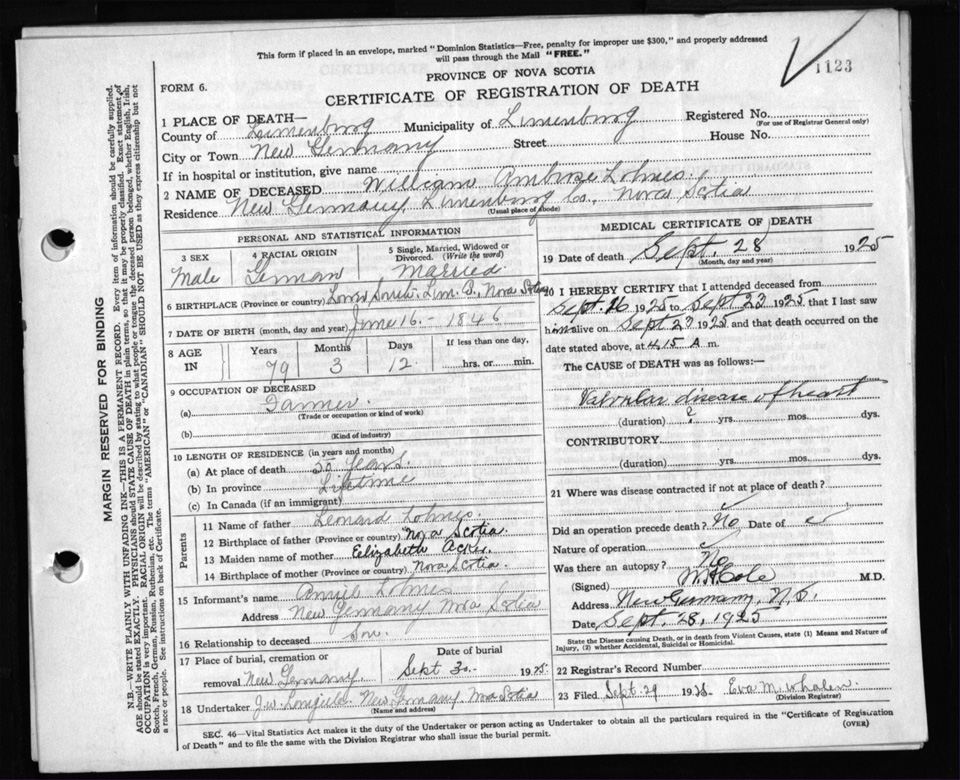 This form if placed in an envelope, marked "Dominion Statistics—Free, penalty for improper use $300," and properly addressed
will pass through the Mail "FREE."
1123
PROVINCE OF NOVA SCOTIA
FORM 6.
CERTIFICATE OF REGISTRATION OF DEATH
1 PLACE OF DEATH—
County of Lunenburg Municipality of Lunenburg Registered No.
(For use of Registrar General only)
City or Town New Germany Street House No.
If in hospital or institution, give name
2 NAME OF DECEASED William Ambrose Lohnes
Residence New Germany, Lunenburg Co., Nova Scotia
(Usual place of abode)
PERSONAL AND STATISTICAL INFORMATION
3 SEX 4 RACIAL ORIGIN 5 Single, Married, Widowed or Divorced. (Write the word)
Male German Married
6 BIRTHPLACE (Province or country) Lun. Co. Nova Scotia
7 DATE OF BIRTH (month, day and year) June 16 - 1846
8 AGE IN Years Months Days If less than one day,
79 3 12 hrs. or min.
9 OCCUPATION OF DECEASED
(a) Farmer
(Trade or occupation or kind of work)
(b)
(Kind of industry)
10 LENGTH OF RESIDENCE (in years and months)
(a) At place of death 50 years.
(b) In province Lifetime
(c) In Canada (if an immigrant)
Parents
11 Name of father Leonard Lohnes
12 Birthplace of father (Province or country) Nova Scotia.
13 Maiden name of mother Eelizabeth Acker.
14 Birthplace of mother (Province or country) Nova Scotia.
15 Informant's name Lohnes
Address New Germany Nova Scotia
16 Relationship to deceased Son.
17 Place of burial, cremation or removal New Germany Date of burial Sept 30 1925
18 Undertaker J.W. New Germany Nova Scotia
(Name and address)
MEDICAL CERTIFICATE OF DEATH
19 Date of death Sept. 28 1925
(Month, day and year)
20 I HEREBY CERTIFY that I attended deceased from
Sept. 16 1925 to Sept 23 1925 that I last saw
him alive on Sept 23 1925 and that death occurred on the
date stated above, at 4.15 A m.
The CAUSE of DEATH was as follows:—
Valvular disease of heart
(duration) ? yrs. mos. dys.
CONTRIBUTORY
(duration) yrs. mos. dys.
21 Where was disease contracted if not at place of death?
Did an operation precede death? No Date of
Nature of operation
Was there an autopsy? No
(Signed) W H Cole M.D.
Address New Germany, N.S.
Date Sept. 28, 1925
State the Disease causing Death, or in death from Violent Causes, state (1) Means and Nature of
Injury, (2) whether Accidental, Suicidal or Homicidal.
22 Registrar's Record Number
23 Filed Sept. 29 1925 Eva M. Whalen
(Division Registrar)
SEC. 46—Vital Statistics Act makes it the duty of the Undertaker or person acting as Undertaker to obtain all the particulars required in the "Certificate of Registration
of Death" and to file the same with the Division Registrar who shall issue the burial permit.
(OVER)
MARGIN RESERVED FOR BINDING
N.B.—WRITE PLAINLY WITH UNFADING INK—THIS IS A PERMANENT RECORD. Every item of information should be carefully supplied.
AGE should be stated EXACTLY. PHYSICIANS should STATE CAUSE OF DEATH in plain terms, so that it may be properly classified. Exact statement of
OCCUPATION is very important. RACIAL ORIGIN will be described by stating to what people or tongue the deceased person belonged, whether English, Irish,
Scotch, French, German, Russian, Ruthenian, etc. The terms "AMERICAN" or "CANADIAN" SHOULD NOT BE USED as they express citizenship but not
a race or people. See instructions on back of Certificate.